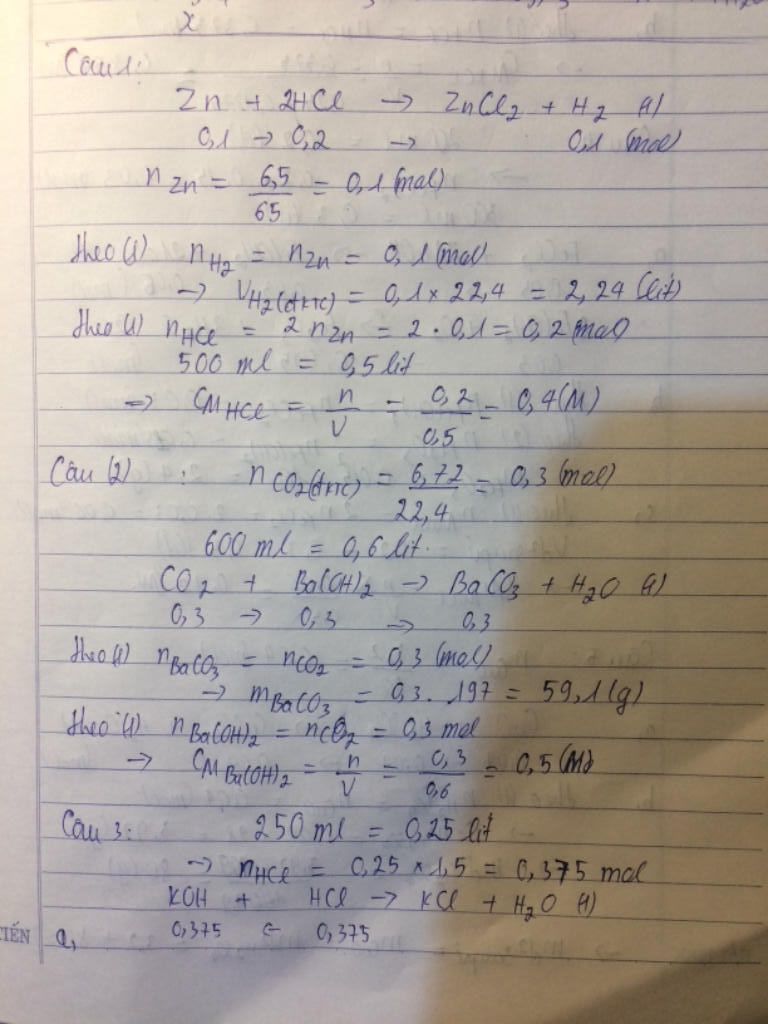 x
Câu 1:
Zn + 2HCl → ZnCl2 + H2 (1)
0,1 → 0,2 → 0,1 (mol)
nZn = 6,5/65 = 0,1 (mol)
theo (1) nH2 = nZn = 0,1 (mol)
→ VH2(đktc) = 0,1 × 22,4 = 2,24 (lít)
theo (1) nHCl = 2 nZn = 2 . 0,1 = 0,2 (mol)
500 ml = 0,5 lít
=> CM HCl = n/V = 0,2/0,5 = 0,4 (M)
Câu (2) : nCO2(đktc) = 6,72/22,4 = 0,3 (mol)
600 ml = 0,6 lít.
CO2 + Ba(OH)2 → BaCO3 + H2O (1)
0,3 → 0,3 → 0,3
theo (1) nBaCO3 = nCO2 = 0,3 (mol)
→ mBaCO3 = 0,3 . 197 = 59,1 (g)
theo (1) nBa(OH)2 = nCO2 = 0,3 mol
→ CM Ba(OH)2 = n/V = 0,3/0,6 = 0,5 (M)
Câu 3: 250 ml = 0,25 lít
→ nHCl = 0,25 × 1,5 = 0,375 mol
KOH + HCl → KCl + H2O (1)
a, 0,375 ← 0,375
TIẾN